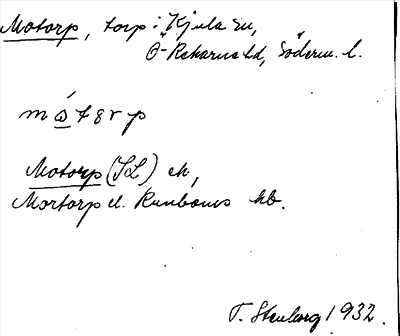 Motorp, torp i Kjula sn,
Ö-Rekarne hd, Söderm. l.
mótǝrp
Motorp (SL) ek,
Mortorp el. Runbous hb.
T. Stenberg 1932.